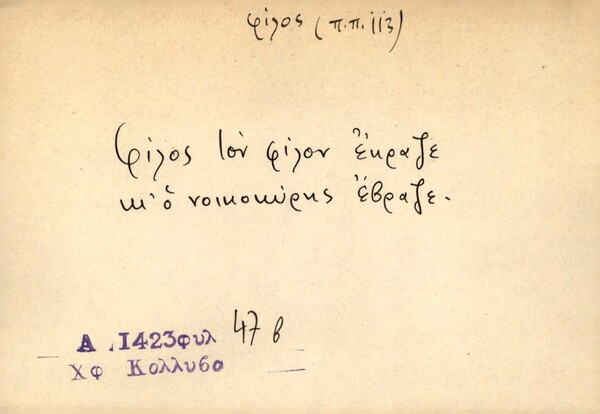 φίλος (π.π. 113)
Φίλος τὸν φίλον ἔκραζε
κι' ὁ νοικοκύρης ἔβραζε.
Α .1423φυλ 47 β
Χφ Κολλυβα